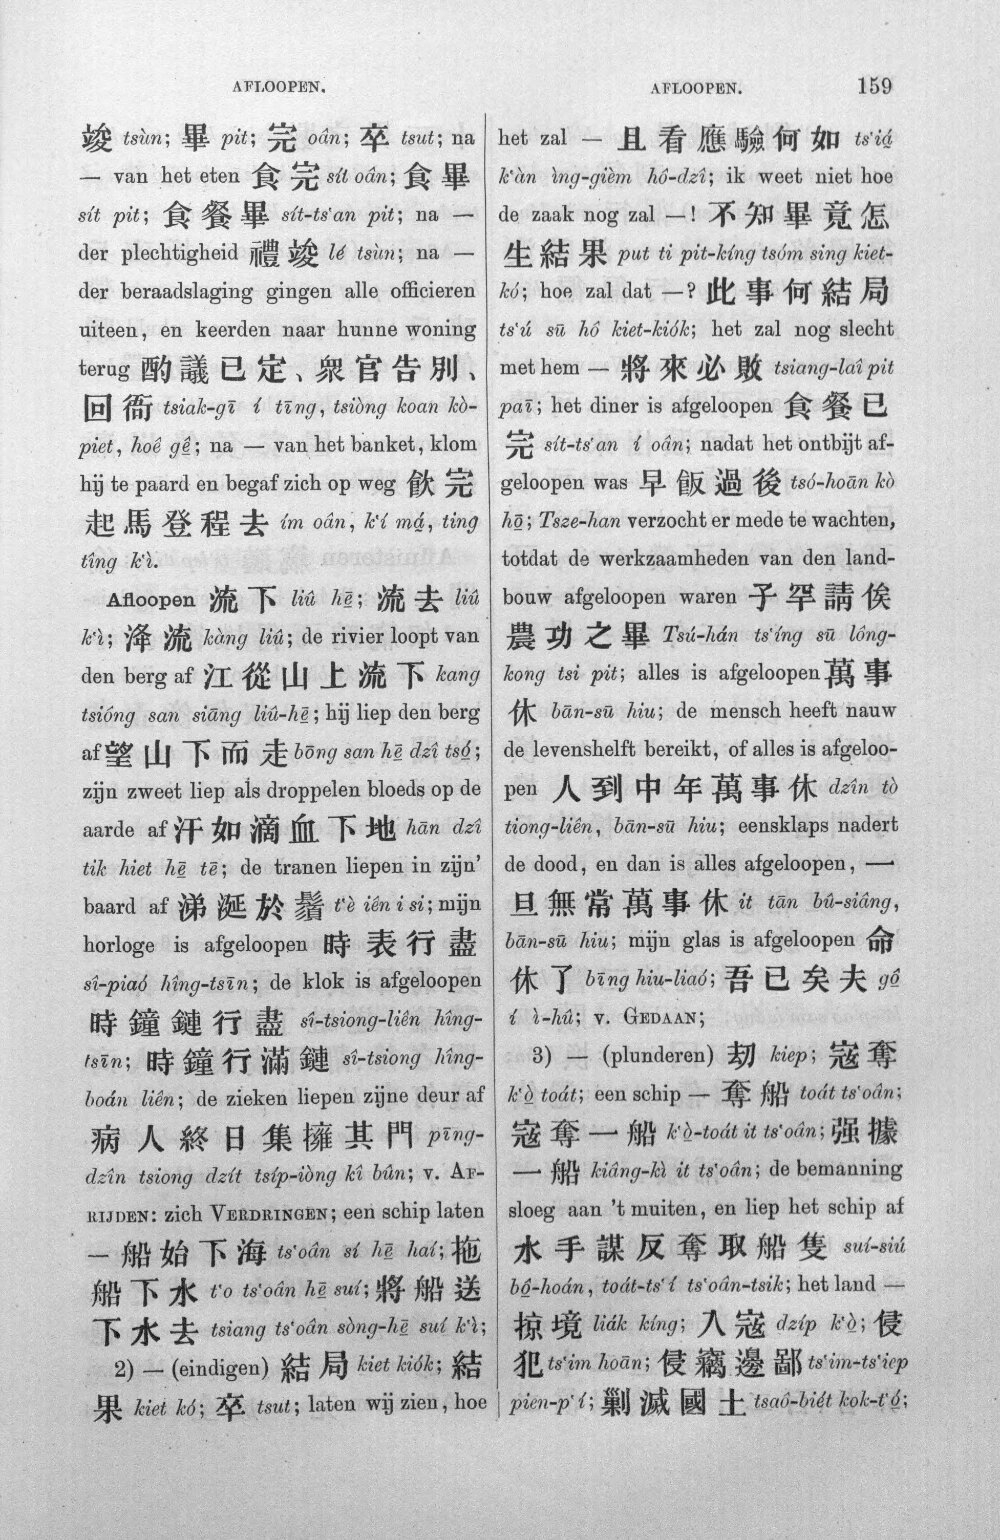 AFLOOPEN.
AFLOOPEN. 159
竣 tsùn; 畢 pit; 完 oân; 卒 tsut; na
— van het eten 食完 sít oân; 食畢
sít pit; 食餐畢 sít-ts'an pit; na —
der plechtigheid 禮竣 lé tsùn; na —
der beraadslaging gingen alle officieren
uiteen, en keerden naar hunne woning
terug 酌議已定、衆官告別、
回衙 tsiak-gī í tīng, tsiòng koan kò-
piet, hoê gê̤; na — van het banket, klom
hij te paard en begaf zich op weg 飲完
起馬登程去 ím oân, k'í má̤, ting
tîng k'ì.
Afloopen 流下 liû hē̤; 流去 liû
k'ì; 漨流 kàng liû; de rivier loopt van
den berg af 江從山上流下 kang
tsiông san siāng liû-hē̤; hij liep den berg
af 望山下而走 bōng san hē̤ dzî tsó̤;
zijn zweet liep als droppelen bloeds op de
aarde af 汗如滴血下地 hān dzî
tik hiet hē̤ tē; de tranen liepen in zijn'
baard af 涕涎於鬚 t'è iên i si; mijn
horloge is afgeloopen 時表行盡
sî-piaó hîng-tsīn; de klok is afgeloopen
時鐘鏈行盡 sî-tsiong-liên hîng-
tsīn; 時鐘行滿鏈 sî-tsiong hîng-
boán liên; de zieken liepen zijne deur af
病人終日集擁其門 pīng-
dzîn tsiong dzít tsíp-iòng kî bûn; v. AF-
RIJDEN: zich VERDRINGEN; een schip laten
— 船始下海 ts'oân sí hē̤ haí; 拖
船下水 t'o ts'oân hē̤ suí; 將船送
下水去 tsiang ts'oân sòng-hē̤ suí k'ì;
2) — (eindigen) 結局 kiet kiók; 結
果 kiet kó; 卒 tsut; laten wij zien, hoe
het zal — 且看應驗何如 ts'iá̤
k'àn ìng-gièm hô-dzî; ik weet niet hoe
de zaak nog zal —! 不知畢竟怎
生結果 put ti pit-kíng tsóm sing kiet-
kó; hoe zal dat —? 此事何結局
ts'ú sū hô kiet-kiók; het zal nog slecht
met hem — 將來必敗 tsiang-laî pit
paī; het diner is afgeloopen 食餐已
完 sít-ts'an í oân; nadat het ontbijt af-
geloopen was 早飯過後 tsó-hoān kò
hō̤; Tsze-han verzocht er mede te wachten,
totdat de werkzaamheden van den land-
bouw afgeloopen waren 子罕請俟
農功之畢 Tsú-hán ts'íng sū lông-
kong tsi pit; alles is afgeloopen 萬事
休 bān-sū hiu; de mensch heeft nauw
de levenshelft bereikt, of alles is afgeloo-
pen 人到中年萬事休 dzîn tò
tiong-liên, bān-sū hiu; eensklaps nadert
de dood, en dan is alles afgeloopen, 一
旦無常萬事休 it tān bû-siâng,
bān-sū hiu; mijn glas is afgeloopen 命
休了 bīng hiu-liaó; 吾已矣夫 gô̤
í ì-hû; v. GEDAAN;
3) — (plunderen) 刧 kiep; 寇奪
k'ò̤ toát; een schip — 奪船 toát ts'oân;
寇奪一船 k'ò̤-toát it ts'oân; 强據
一船 kiâng-kì it ts'oân; de bemanning
sloeg aan 't muiten, en liep het schip af
水手謀反奪取船隻 suí-siú
bô̤-hoán, toát-ts'í ts'oân-tsik; het land —
掠境 liák kíng; 入寇 dzíp k'ò̤; 侵
犯 ts'im hoān; 侵竊邊鄙 ts'im-ts'iep
pien-p'í; 剿滅國土 tsaô-biét kok-t'ó̤;